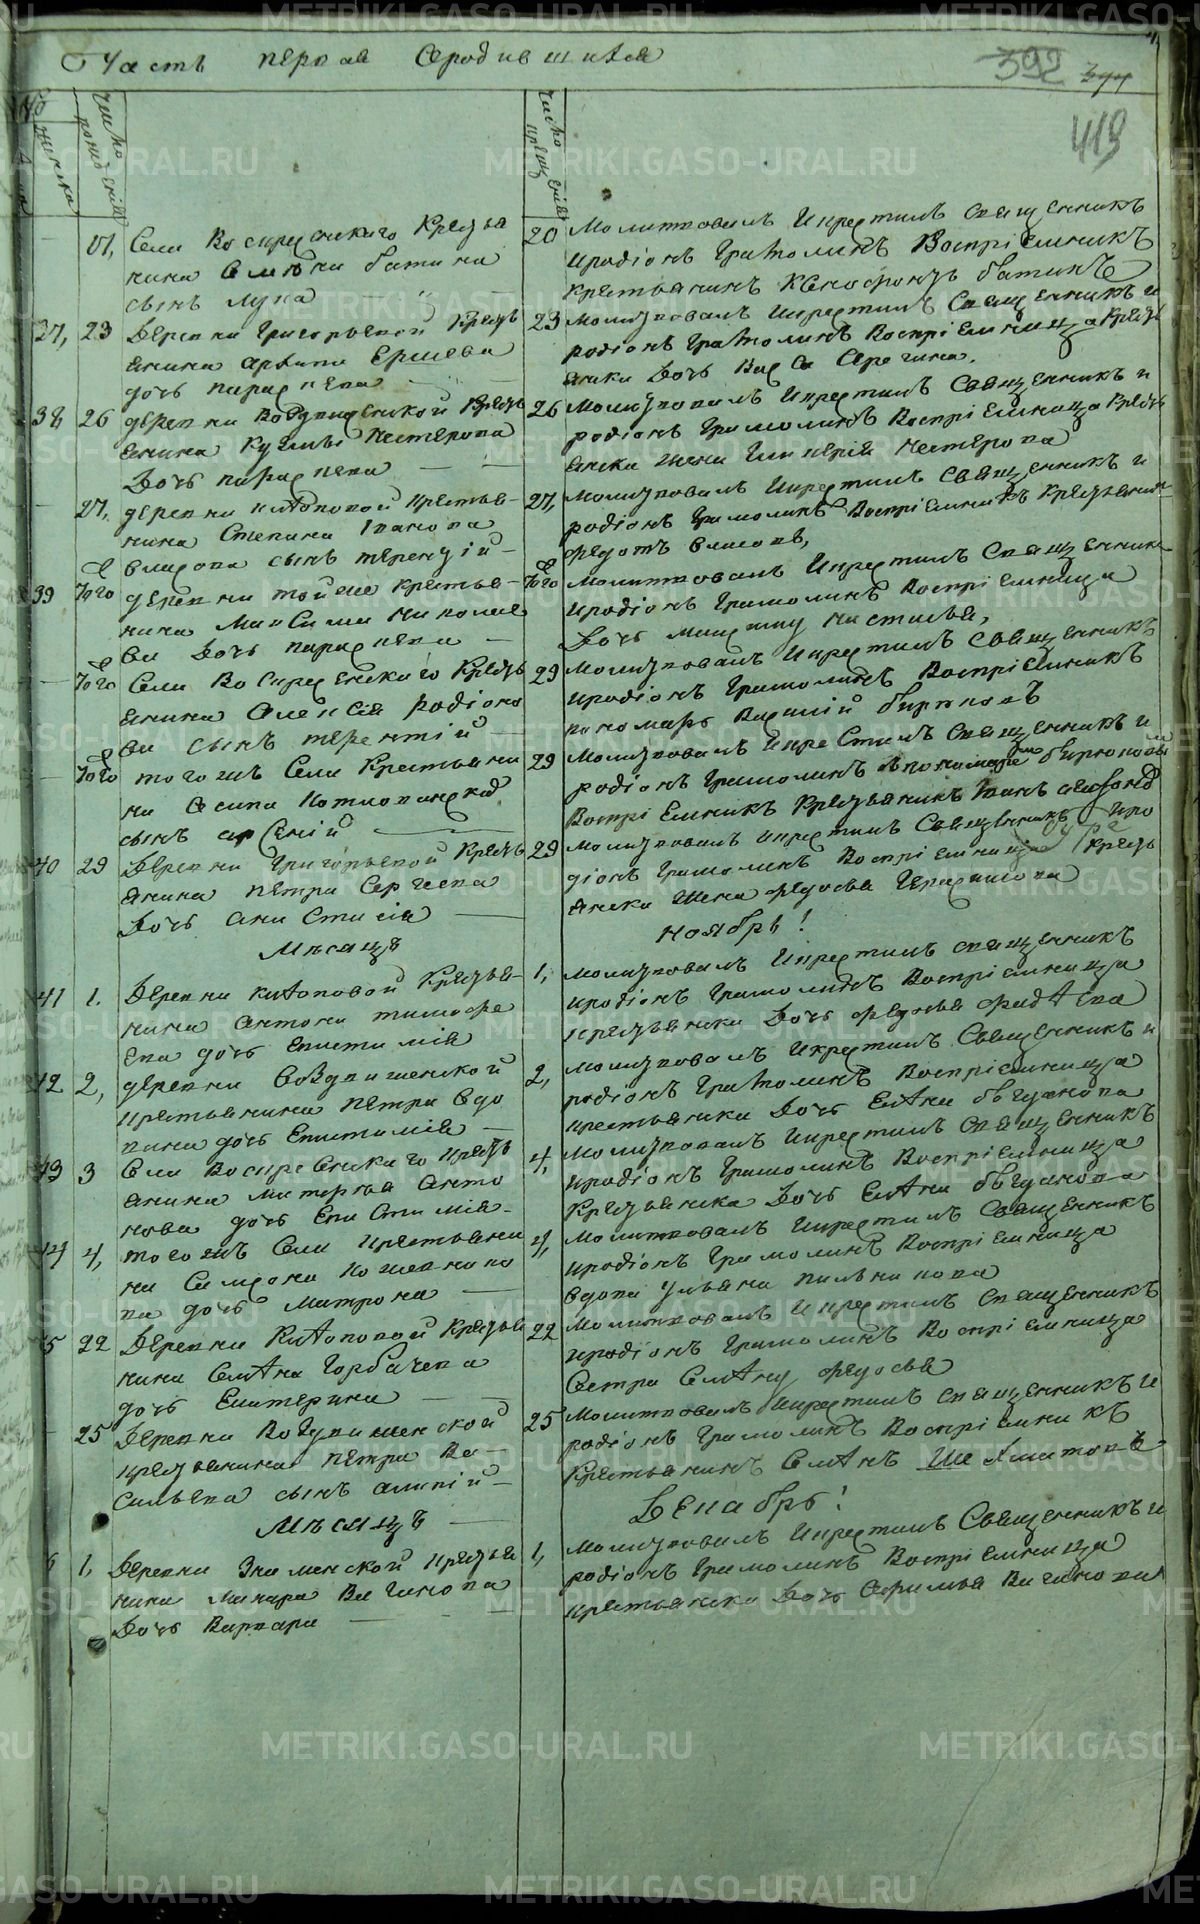 Часть первая о родившихся
392
419
Число рождений
Число крещений
01, Села Воскресенскаго Кресья
нина Семена батина
сынъ Лука
20 Молитвовалъ И крестилъ Священникъ
иродіонъ Грамолинъ Воспріемникъ
крестьянинъ Ксенофонтъ батинъ
37, 23 Деревни Григорьевой Кресть
янина архипа Ершева
дочь параскева
23 молитвовалъ И крестилъ Священникъ и
родіонъ Грамолинъ Воспріемница Кресть
янска Дочь
38, 26 деревни Воздвиженской Кресть
янина Кузмы Нестерова
Дочь параскева
26 Молитвовалъ И крестилъ Священникъ и
родіонъ Грамолинъ Воспріемница Кресть
янска жена Гликерія Нестерова
27, деревни китоповой крестья
нина Степана Іванова
Власова сынъ терентій
27, молитвовалъ И крестилъ Священникъ и
родіонъ Грамолинъ Воспріемникъ Крестьянин
федотъ Власовъ,
39 Того деревни той же крестья
нина Максима Николае
ва Дочь параскева
Того молитвовалъ И крестилъ Священникъ
иродіонъ Грамолинъ Воспріемница
Дочь настасья,
Того Села Воскресенскаго Кресть
янина Алексія Родіоно
ва сынъ терентій
29 молитвовалъ И крестилъ Священникъ
иродіонъ Грамолинъ Воспріемникъ
пономарь Василій бирюковъ
Того того жъ Села Крестьяни
на Осипа
сынъ арсеній
29 Молитвовалъ И крестилъ Священникъ и
родіонъ Грамолинъ съ пономаремъ бирюковым
Воспріемникъ Крестьянинъ
40 29 Деревни Григорьевой Кресть
янина петра Сергеева
Дочь анастасія
29 молитвовалъ И крестилъ Священникъ иро
діонъ Грамолинъ Воспріемница Кресть
янска жена федосья Герасимова
Мѣсяцъ ноябрь!
41 1. Деревни китоповой Крестья
нина антона тимофе
ева дочь епистимія
1, молитвовалъ И крестилъ священникъ
иродіонъ Грамолинъ Воспріемница
крестьянска Дочь федосья фадѣева
42 2, деревни Воздвиженской
крестьянина петра Вдо
вина дочь Епистимія
2, молитвовалъ И крестилъ Священникъ и
родіонъ Грамолинъ Воспріемница
крестьянска Дочь Елена богданова
43 3 Села Воскресенскаго Кресть
янина матервея Анто
нова дочь Епистимія
4, Молитвовалъ И крестилъ Священникъ
иродіонъ Грамолинъ Воспріемница
Крестьянска Дочь Елена богданова
44 4, того жъ Села Крестьяни
на Самсона Кожевнико
ва дочь Матрона
4, молитвовалъ И крестилъ Священникъ
иродіонъ Грамолинъ Воспріемница
вдова Ульяна пильникова
45 22 Деревни Китоповой Крестья
нина Семена Горбачева
дочь Екатерина
22 Молитвовалъ И крестилъ Священникъ
иродіонъ Грамолинъ Воспріемница
Сестра Семену федосья
25 Деревни Воздвиженской
крестьянина петра Ва
сильева сынъ алипій
25 Молитвовалъ И крестилъ Священникъ И
родіонъ Грамолинъ Воспріемникъ
Крестьянинъ Семенъ Шелматовъ
Мѣсяцъ Декабрь!
1, Деревни Знаменской крестья
нина Макара Вагинова
Дочь Варвара
1, Молитвовалъ И крестилъ Священникъ и
родіонъ Грамолинъ Воспріемница
крестьянска Дочь Вагинова